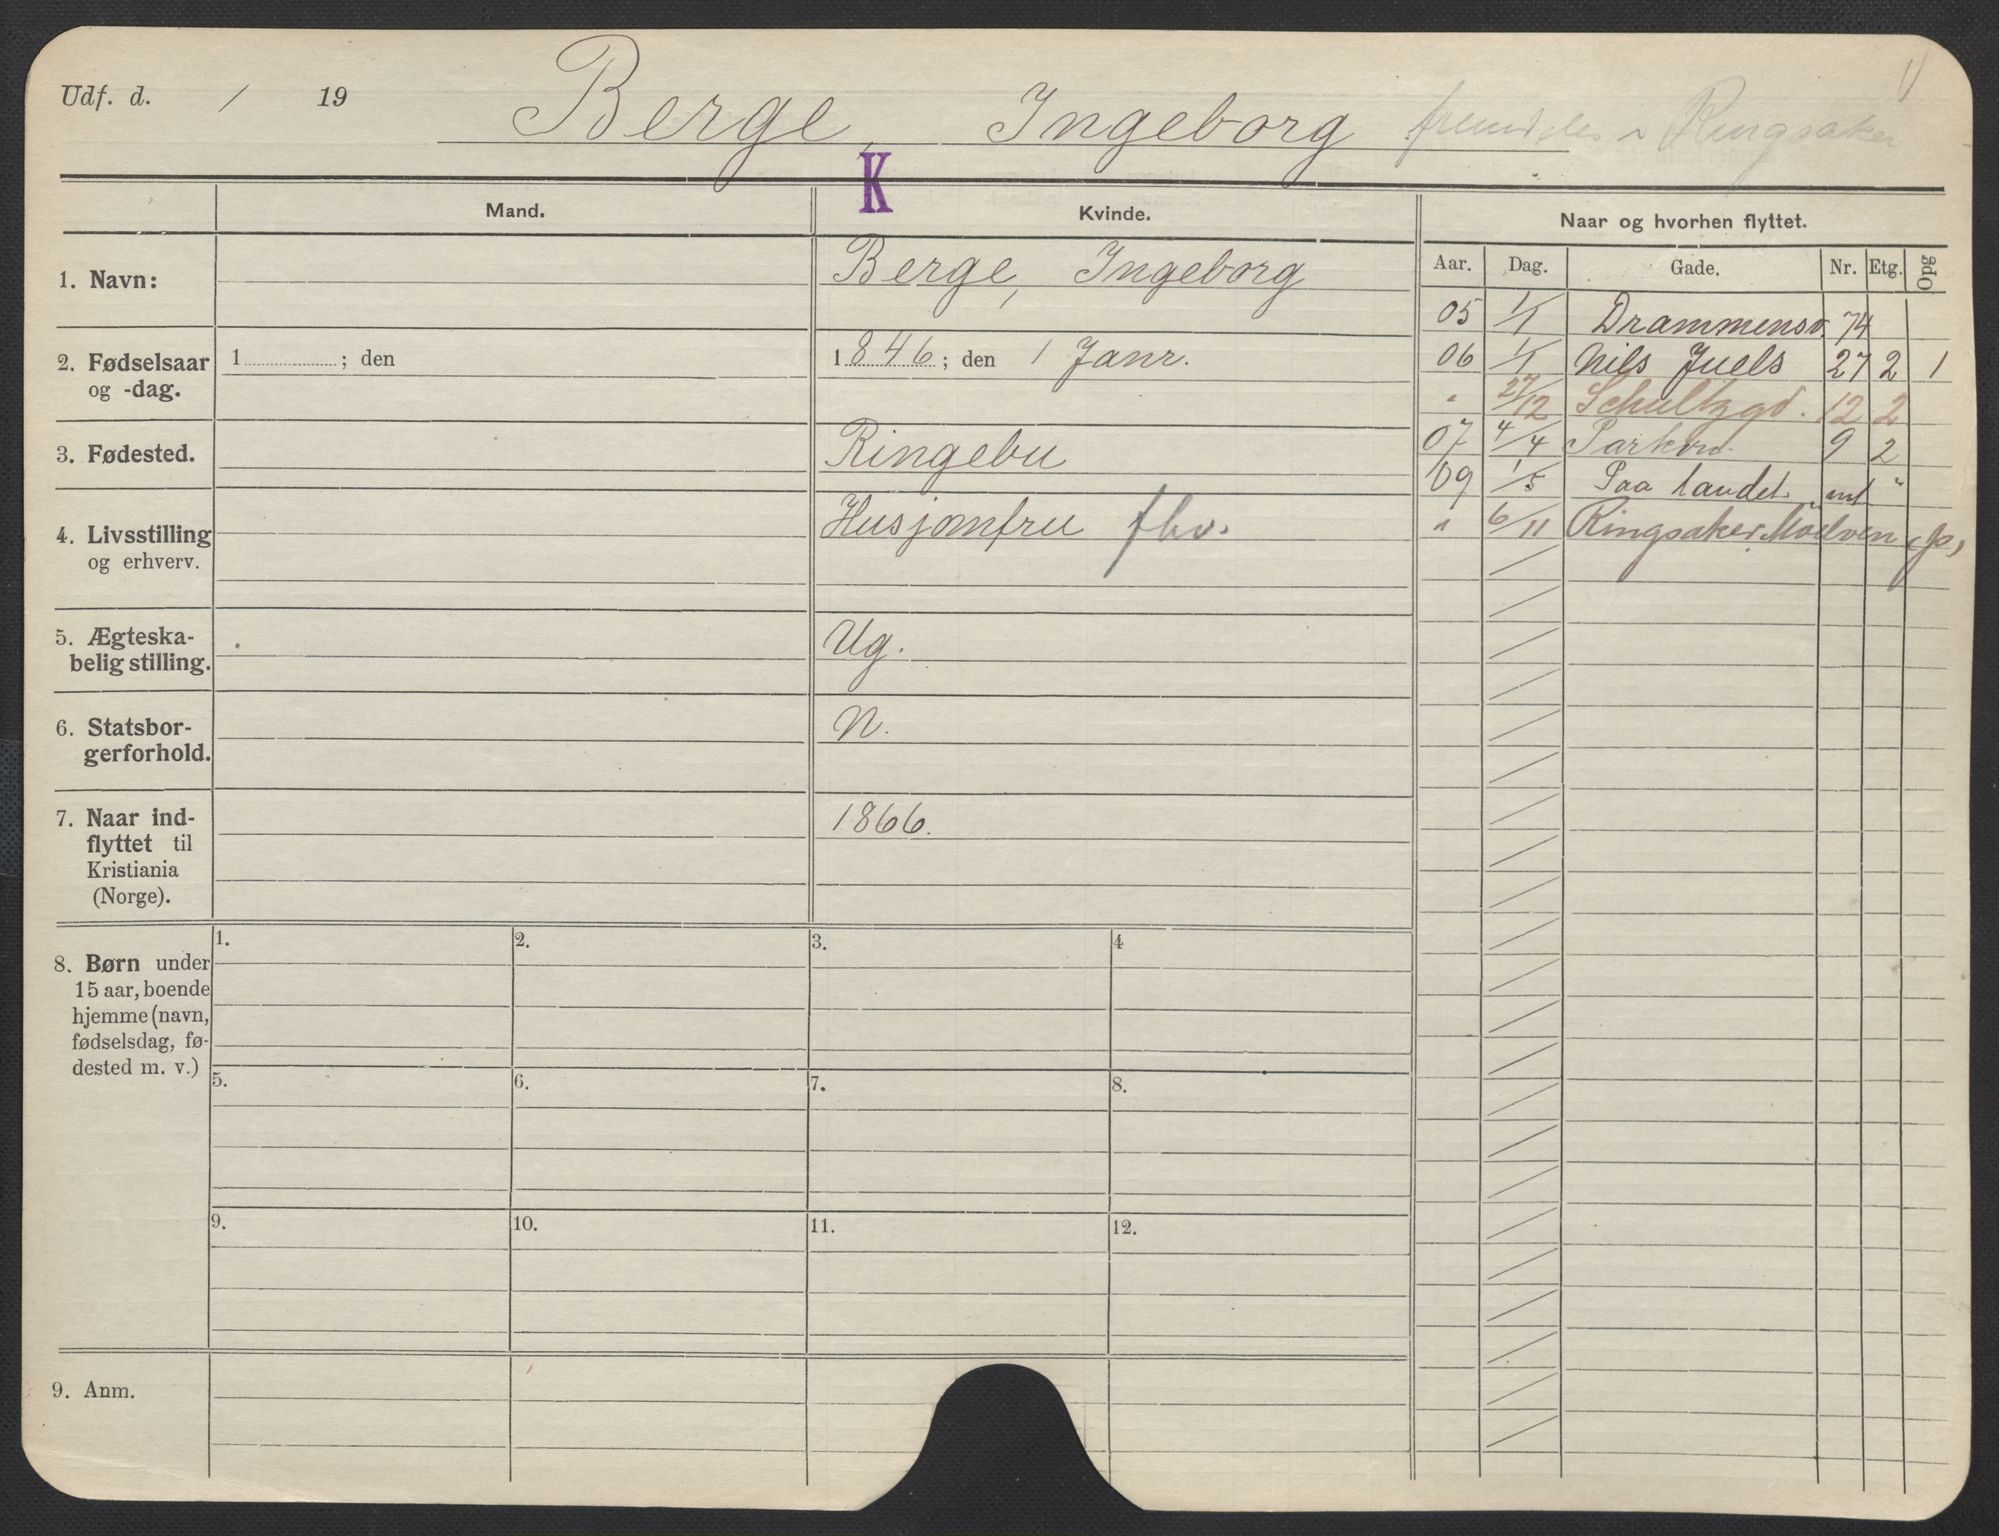 Udf. d. / 19 Berge, Ingeborg fremdeles i Ringsaker
K
Mand. Kvinde. Naar og hvorhen flyttet.
Aar. Dag. Gade. Nr. Etg. Opg
1. Navn: Berge, Ingeborg
2. Fødselsaar 1 ; den 1846; den 1 Janr.
og -dag.
3. Fødested. Ringebu
4. Livsstilling Husjomfru fhv.
og erhverv.
5. Ægteska-
belig stilling. Ug.
6. Statsbor-
gerforhold. N.
7. Naar ind-
flyttet til 1866.
Kristiania
(Norge).
05 1/1 Drammensv. 74
06 1/1 Nils Juels 27 2 1
" 27/12 Schultzgd. 12 2
07 4/4 Parkvn. 9 2
09 1/5 Paa landet "
" 6/11 Ringsaker, Moelven
8. Børn under
15 aar, boende
hjemme (navn,
fødselsdag, fø-
dested m. v.)
1. 2. 3. 4
5. 6. 7. 8.
9. 10. 11. 12.
9. Anm.